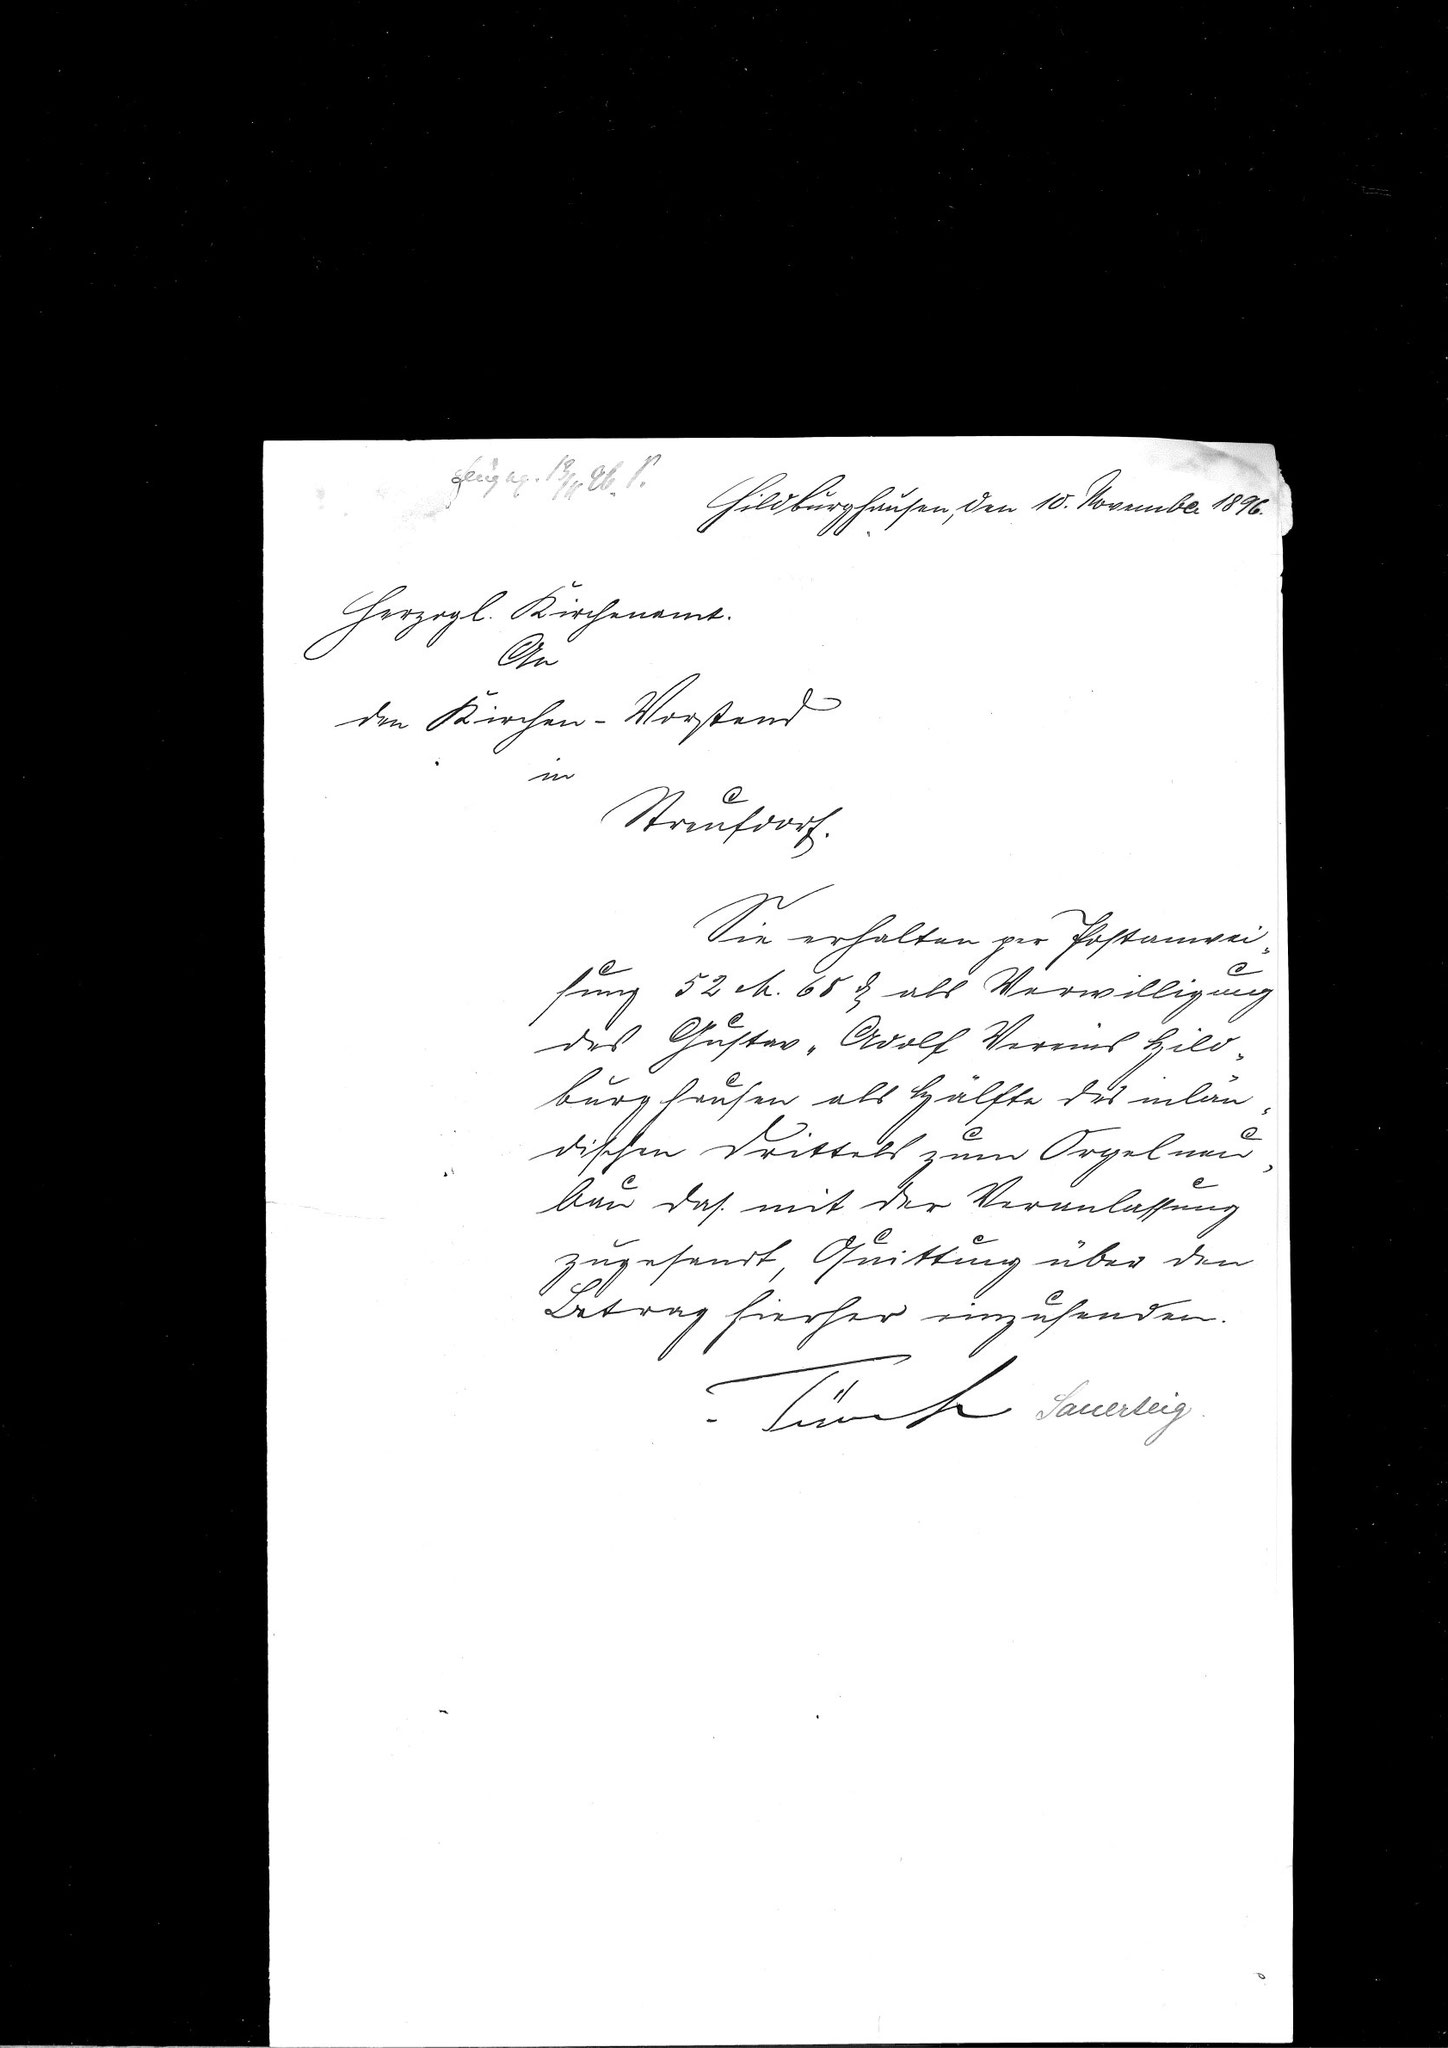 Hildburghausen, den 10. November 1896.
Herzogl. Kirchenamt.
An
den Kirchen-Vorstand
in
Streufdorf.
Sie erhalten per Postanwei-
sung 52 M. 65 ₰ als Verwilligung
des Gustav-Adolf Vereins Hild-
burghausen als Hälfte des inlän-
dischen Drittels zum Orgelneu-
bau das. mit der Veranlassung
zugesandt, Quittung über den
Betrag hierher einzusenden.
Sauerteig.